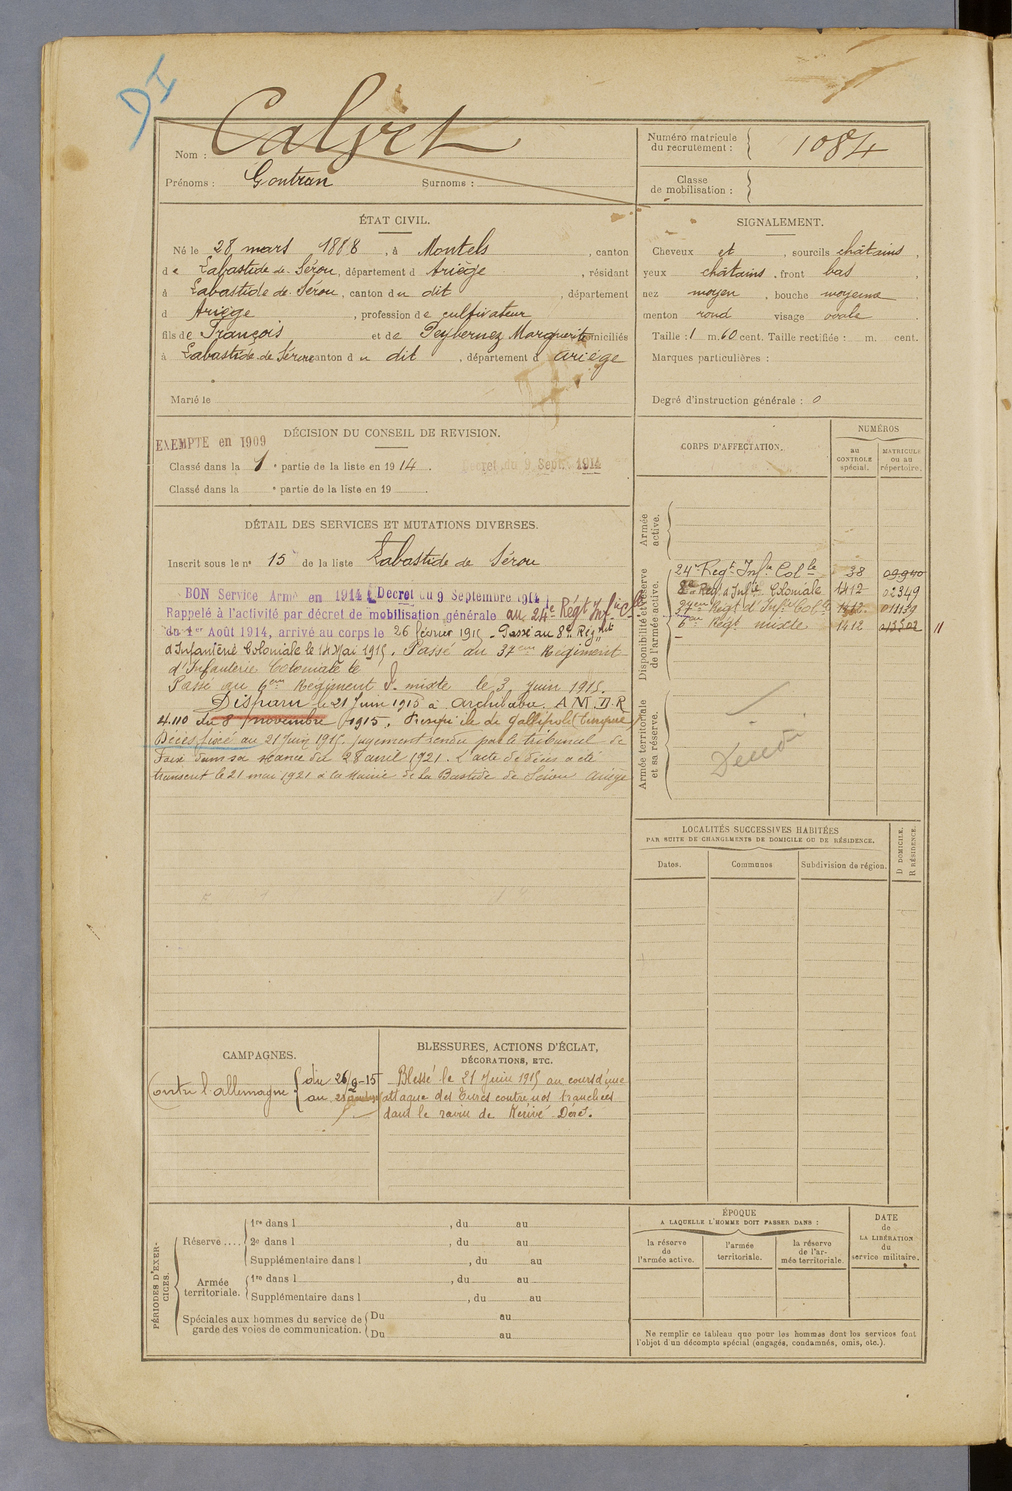 DI
Nom : Calvet
Prénoms : Gontran Surnoms :
Numéro matricule du recrutement : 1084
Classe de mobilisation :
ÉTAT CIVIL.
Né le 28 mars 1888, à Montels, canton
de Labastide de Sérou, département d Ariège, résidant
à Labastide de Sérou, canton du dit, département
d Ariège, profession de cultivateur
fils de François et de Peybernez Marguerite domiciliés
à Labastide de Sérou canton du dit, département d Ariège
Marié le
SIGNALEMENT.
Cheveux et, sourcils châtains,
yeux châtains, front bas
nez moyen, bouche moyenne
menton rond visage ovale
Taille : 1 m. 60 cent. Taille rectifiée : m. cent.
Marques particulières :
Degré d'instruction générale : 0
DÉCISION DU CONSEIL DE REVISION.
EXEMPTÉ en 1909
Classé dans la 1e partie de la liste en 1914. Décret du 9 Sept. 1914
Classé dans la e partie de la liste en 19 .
DÉTAIL DES SERVICES ET MUTATIONS DIVERSES.
Inscrit sous le no 15 de la liste Labastide de Sérou
BON Service Armé en 1914 (Décret du 9 Septembre 1914)
Rappelé à l'activité par décret de mobilisation générale au 24e Régt Infie Cle
du 1er Août 1914, arrivé au corps le 26 février 1915 Passé au 8e Régiment
d'Infanterie Coloniale le 14 Mai 1915. Passé au 37ème Régiment
d'Infanterie Coloniale le
Passé au 6ème Régiment I. mixte le 3 Juin 1915.
Disparu le 21 Juin 1915 à Archibaba. A.M.D.R
4.110 du 8 novembre 1915. Presqu'ile de Gallipoli (Turquie)
Décès fixé au 21 Juin 1915. Jugement rendu par le tribunal de
Foix dans sa séance du 28 avril 1921. L'acte de décès a été
transcrit le 21 mai 1921 à la Mairie de La Bastide de Sérou Ariège
CORPS D'AFFECTATION.
NUMÉROS
au CONTROLE spécial.
MATRICULE ou au répertoire.
Armée active.
Disponibilité et réserve de l'armée active.
24e Régt Infie Colle 38
8e Régt d'Infie Coloniale 1412 02349
37ème Régt d'Infie Colle 1412 011139
6ème Régt mixte 1412 11
Armée territoriale et sa réserve.
LOCALITÉS SUCCESSIVES HABITÉES
PAR SUITE DE CHANGEMENTS DE DOMICILE OU DE RÉSIDENCE.
Dates.
Communes
Subdivision de région.
D DOMICILE.
R RÉSIDENCE.
CAMPAGNES.
Contre l'allemagne du 26/2-15
au 21
BLESSURES, ACTIONS D'ÉCLAT,
DÉCORATIONS, ETC.
Blessé le 21 Juin 1915 au cours d'une
attaque des Turcs contre nos tranchées
dans le ravin de Kérévé Déré.
PÉRIODES D'EXERCICES.
Réserve.... 1re dans l , du au
2e dans l , du au
Supplémentaire dans l , du au
Armée territoriale. 1re dans l , du au
Supplémentaire dans l , du au
Spéciales aux hommes du service de garde des voies de communication. Du au
Du au
ÉPOQUE
A LAQUELLE L'HOMME DOIT PASSER DANS :
la réserve de l'armée active.
l'armée territoriale.
la réserve de l'armée territoriale.
DATE de LA LIBÉRATION du service militaire.
Ne remplir ce tableau que pour les hommes dont les services font
l'objet d'un décompte spécial (engagés, condamnés, omis, etc.).